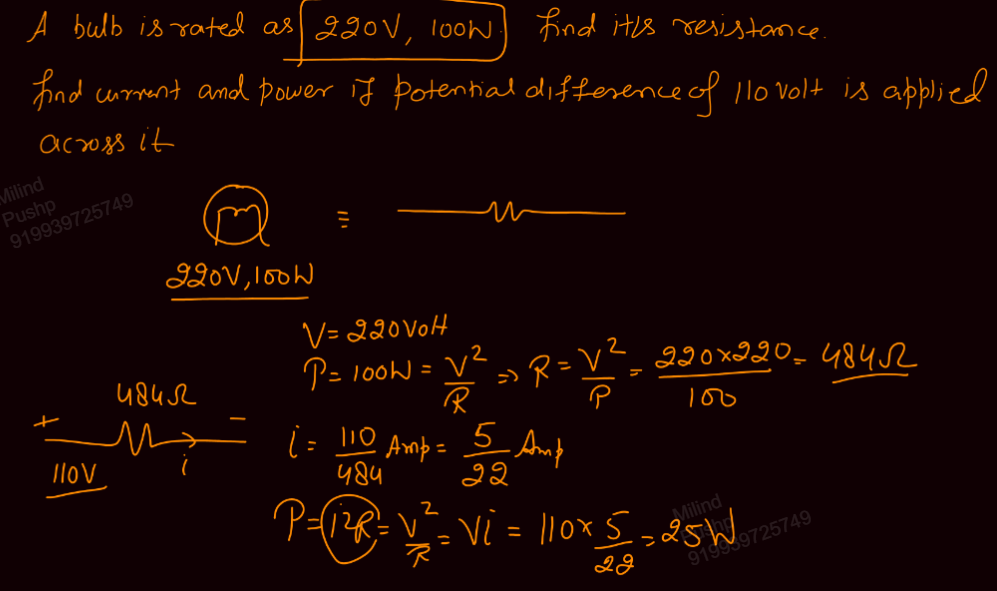 A bulb is rated as 220V, 100W. find it's resistance.
find current and power if potential difference of 110 volt is applied
across it
Milind
Pushp
919939725749
≡
220V, 100W
V = 220 Volt
P = 100W = V²/R ⇒ R = V²/P = 220×220/100 = 484Ω
484Ω
+ −
110V
i
i = 110/484 Amp = 5/22 Amp
P = i²R = V²/R = Vi = 110 × 5/22 = 25W
Milind
Pushp
919939725749